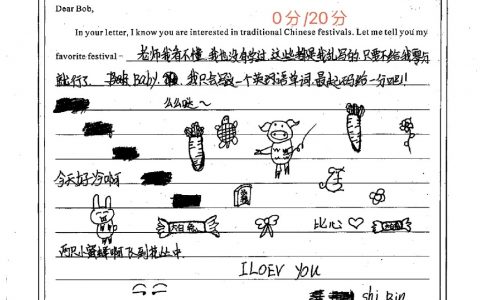 Dear Bob,
0分/20分
In your letter, I know you are interested in traditional Chinese festivals. Let me tell you my
favorite festival – 老师我看不懂,我也没学过,这些都是我乱写的,只要不给我零分
就行了. Baby. 我只会写一个英语单词,最起码给一分吧!!
么么哒~
今天好冷啊
大白兔 比心♡ 大白兔
两只小蜜蜂啊飞到花丛中
I LOEV YOU
shi Bin